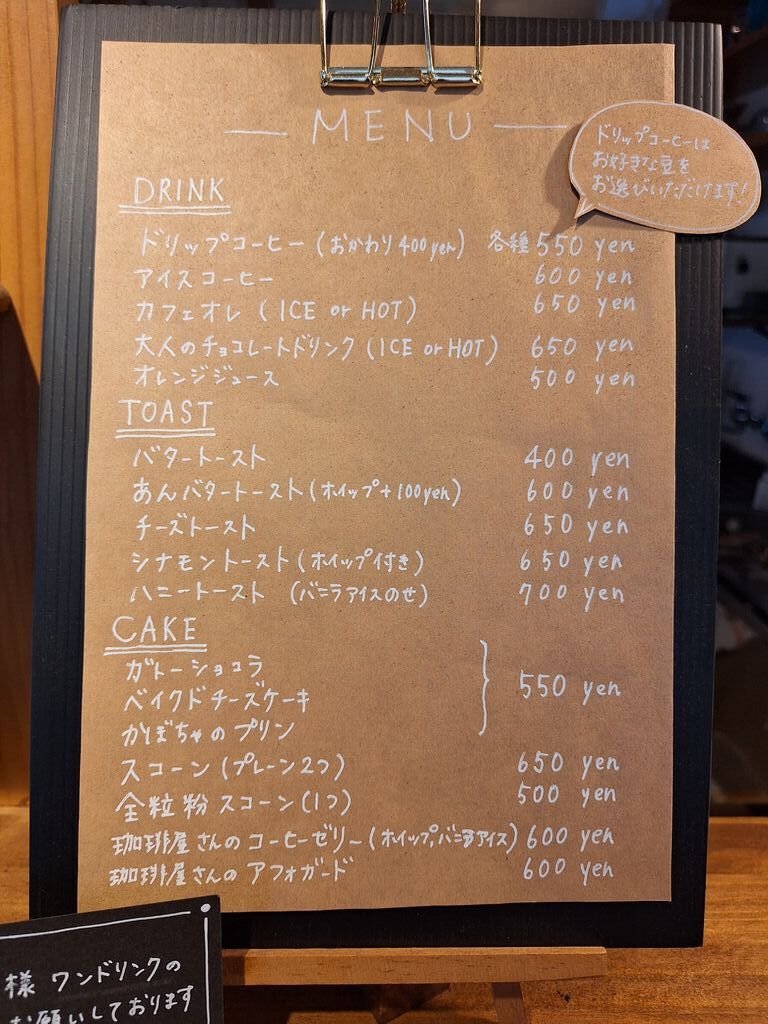 MENU
ドリップコーヒーは
お好きな豆を
お選びいただけます!
DRINK
ドリップコーヒー (おかわり400yen) 各種 550 yen
アイスコーヒー 600 yen
カフェオレ (ICE or HOT) 650 yen
大人のチョコレートドリンク (ICE or HOT) 650 yen
オレンジジュース 500 yen
TOAST
バタートースト 400 yen
あんバタートースト (ホイップ+100yen) 600 yen
チーズトースト 650 yen
シナモントースト (ホイップ付き) 650 yen
ハニートースト (バニラアイスのせ) 700 yen
CAKE
ガトーショコラ
ベイクドチーズケーキ 550 yen
かぼちゃのプリン
スコーン (プレーン2つ) 650 yen
全粒粉スコーン (1つ) 500 yen
珈琲屋さんのコーヒーゼリー (ホイップ,バニラアイス) 600 yen
珈琲屋さんのアフォガード 600 yen
様 ワンドリンクの
お願いしております